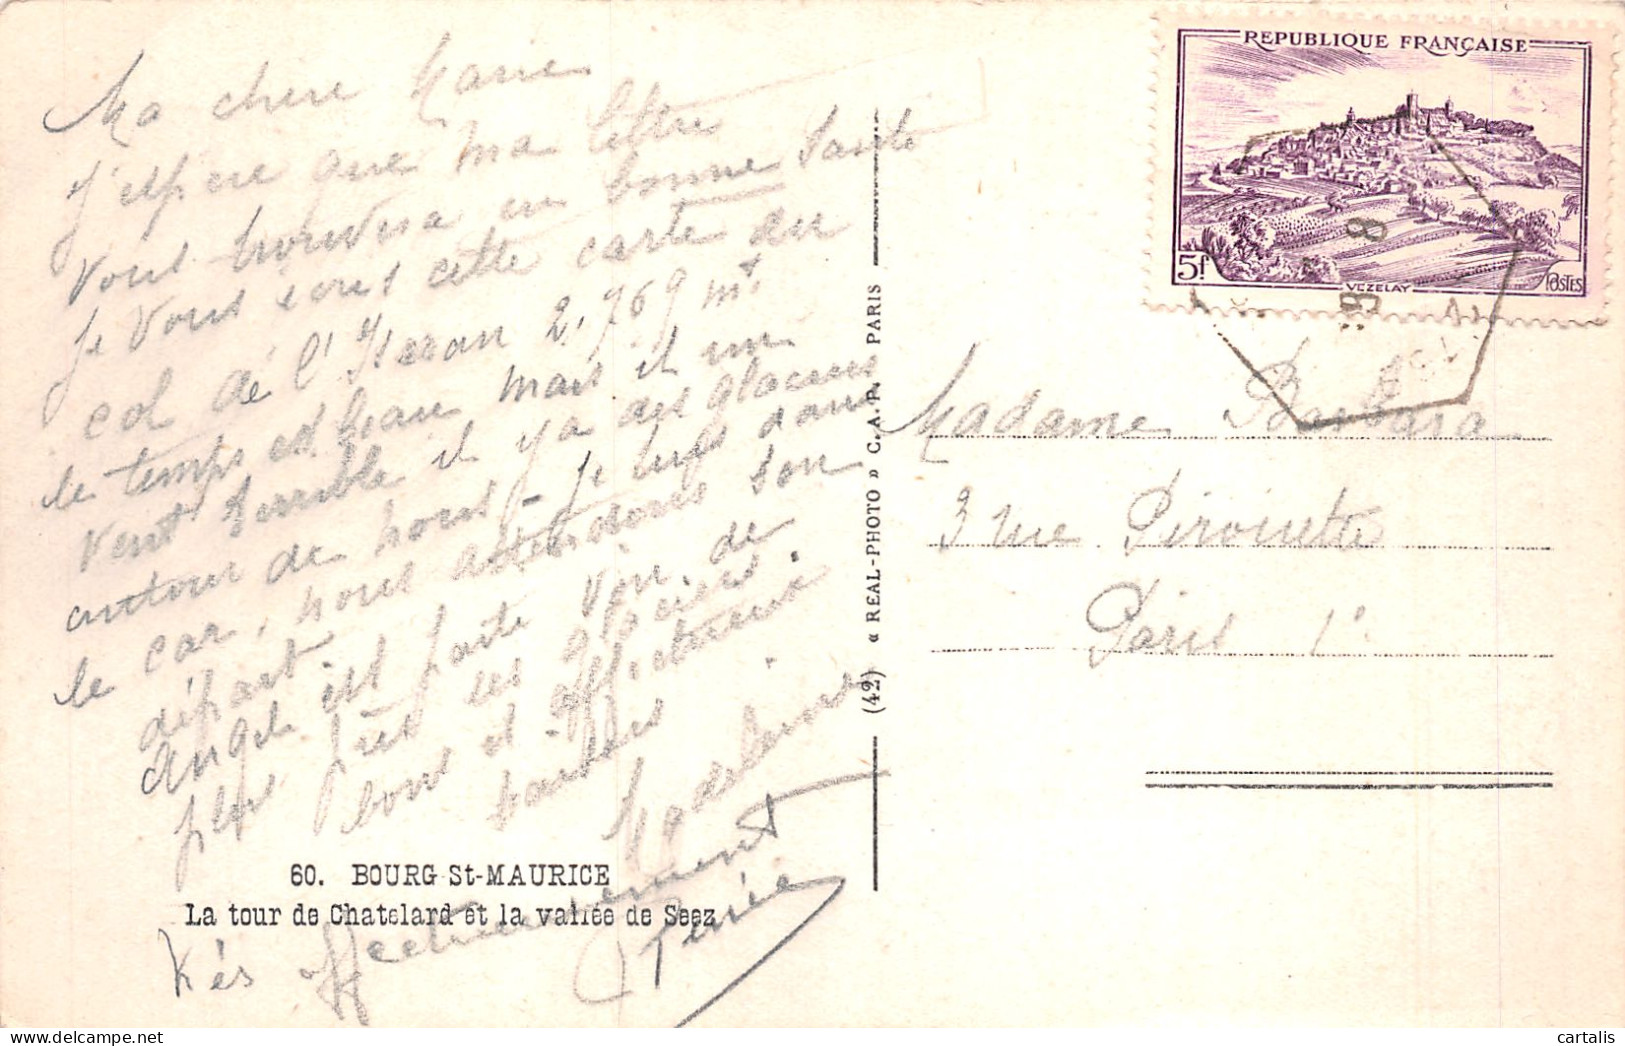 Ma chere Marie
J'espere que ma lettre
vous trouvera en bonne santé
Je vous ecris cette carte du
col de l'Iseran 2.769 mt.
le temps est beau mais il un
vent terrible il y a des glaciers
autour de nous - Je suis dans
le car, nous attendons son
départ
Angele est partie voir de
plus près les glaciers.
bons et affectueux
baisers
Madeleine
60. BOURG St-MAURICE
La tour de Chatelard et la vallée de Seez
Très affectueusement
(42) « REAL-PHOTO » C. A. P. PARIS
REPUBLIQUE FRANÇAISE
5f
VEZELAY
POSTES
Madame Barbara
3 rue Pirouette
Paris 1e
cartalis